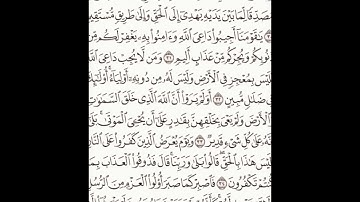 مُصَدِّقًا لِّمَا بَيْنَ يَدَيْهِ يَهْدِىٓ إِلَى ٱلْحَقِّ وَإِلَىٰ طَرِيقٍ مُّسْتَقِيمٍ
يَٰقَوْمَنَآ أَجِيبُوا۟ دَاعِىَ ٱللَّهِ وَءَامِنُوا۟ بِهِۦ يَغْفِرْ لَكُم مِّن
ذُنُوبِكُمْ وَيُجِرْكُم مِّنْ عَذَابٍ أَلِيمٍ ٣١ وَمَن لَّا يُجِبْ دَاعِىَ ٱللَّهِ
فَلَيْسَ بِمُعْجِزٍ فِى ٱلْأَرْضِ وَلَيْسَ لَهُۥ مِن دُونِهِۦٓ أَوْلِيَآءُ أُو۟لَٰٓئِكَ
فِى ضَلَٰلٍ مُّبِينٍ ٣٢ أَوَلَمْ يَرَوْا۟ أَنَّ ٱللَّهَ ٱلَّذِى خَلَقَ ٱلسَّمَٰوَٰتِ
وَٱلْأَرْضَ وَلَمْ يَعْىَ بِخَلْقِهِنَّ بِقَٰدِرٍ عَلَىٰٓ أَن يُحْـِۧىَ ٱلْمَوْتَىٰ بَلَىٰٓ
إِنَّهُۥ عَلَىٰ كُلِّ شَىْءٍ قَدِيرٌ ٣٣ وَيَوْمَ يُعْرَضُ ٱلَّذِينَ كَفَرُوا۟ عَلَى ٱلنَّارِ
أَلَيْسَ هَٰذَا بِٱلْحَقِّ قَالُوا۟ بَلَىٰ وَرَبِّنَا قَالَ فَذُوقُوا۟ ٱلْعَذَابَ بِمَا
كُنتُمْ تَكْفُرُونَ ٣٤ فَٱصْبِرْ كَمَا صَبَرَ أُو۟لُوا۟ ٱلْعَزْمِ مِنَ ٱلرُّسُلِ